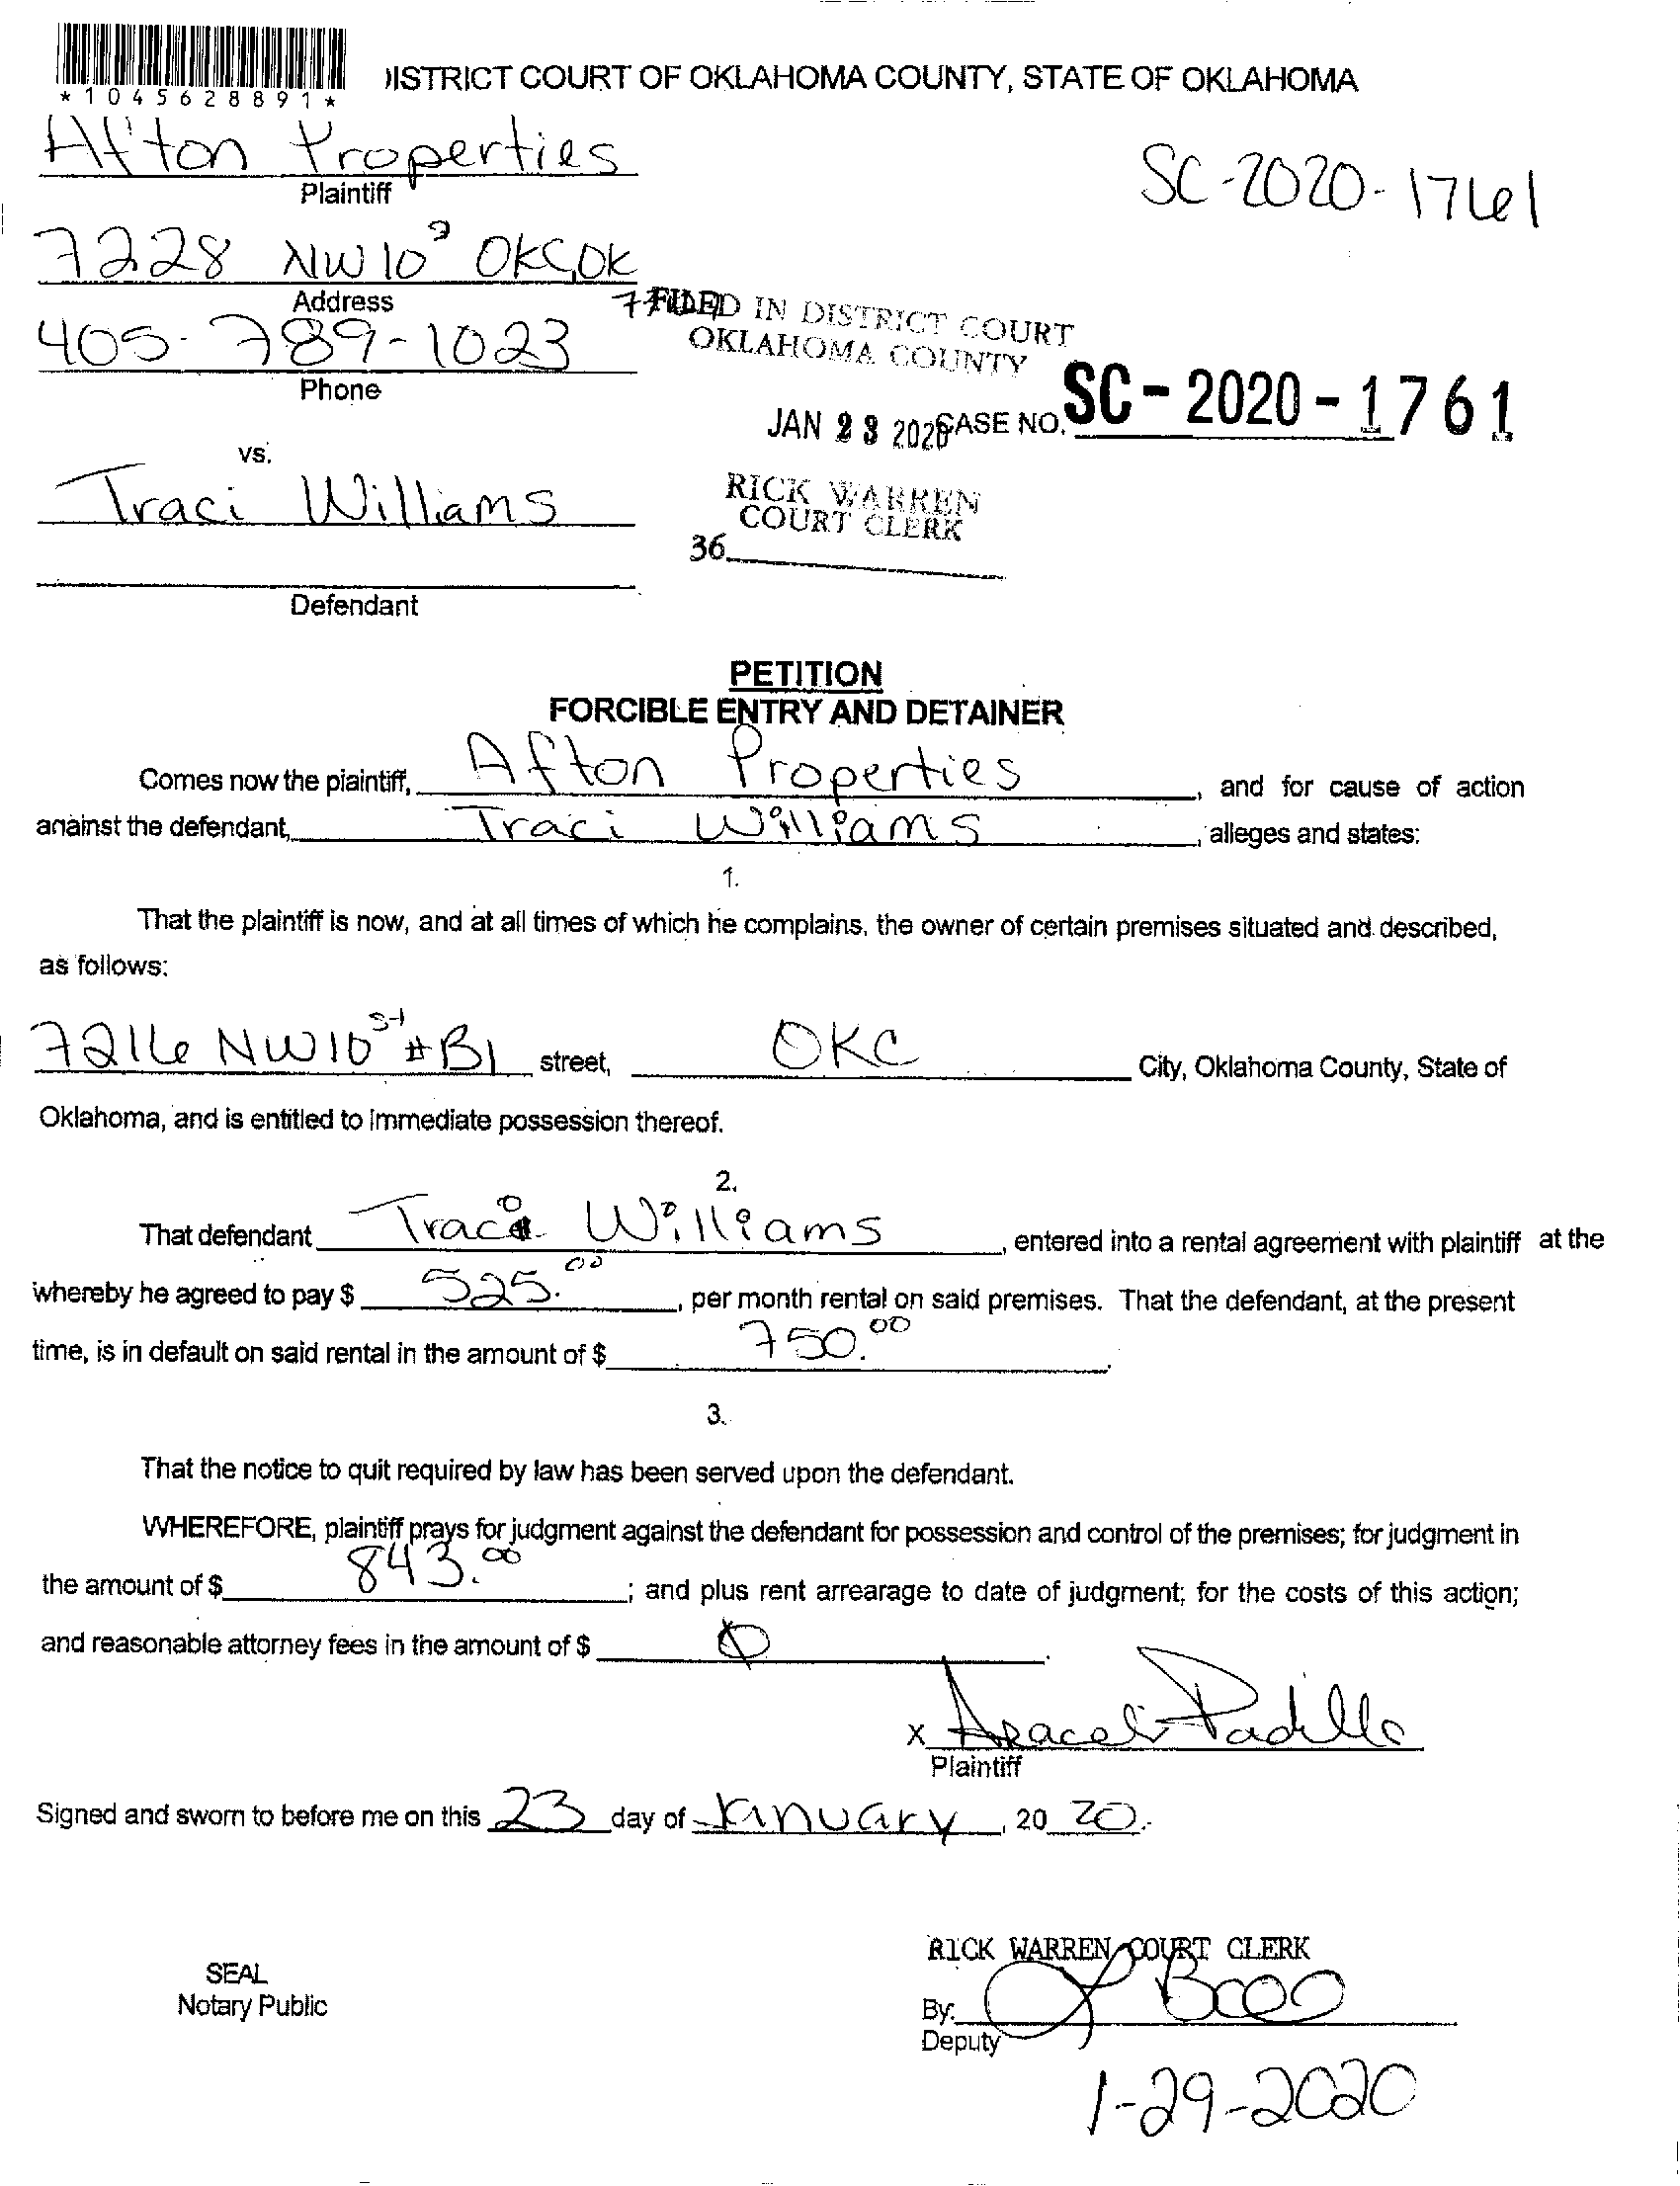 *1045628891*
DISTRICT COURT OF OKLAHOMA COUNTY, STATE OF OKLAHOMA
Afton Properties
Plaintiff
SC-2020-1761
7228 NW 10 OKC, OK
Address
FILED IN DISTRICT COURT
OKLAHOMA COUNTY
405-789-1023
Phone
JAN 23 2020 CASE NO. SC-2020-1761
vs.
Traci Williams
RICK WARREN
COURT CLERK
36
Defendant
PETITION
FORCIBLE ENTRY AND DETAINER
Comes now the plaintiff, Afton Properties, and for cause of action
against the defendant, Traci Williams, alleges and states:
1.
That the plaintiff is now, and at all times of which he complains, the owner of certain premises situated and described,
as follows:
7216 NW 10 st #B1 street, OKC City, Oklahoma County, State of
Oklahoma, and is entitled to immediate possession thereof.
2.
That defendant Traci Williams, entered into a rental agreement with plaintiff at the
whereby he agreed to pay $ 525.00, per month rental on said premises. That the defendant, at the present
time, is in default on said rental in the amount of $ 750.00.
3.
That the notice to quit required by law has been served upon the defendant.
WHEREFORE, plaintiff prays for judgment against the defendant for possession and control of the premises; for judgment in
the amount of $ 843.00; and plus rent arrearage to date of judgment; for the costs of this action;
and reasonable attorney fees in the amount of $ 0.
X Araceli Padilla
Plaintiff
Signed and sworn to before me on this 23 day of January, 2020.
RICK WARREN COURT CLERK
SEAL
Notary Public
By:
Deputy
1-29-2020